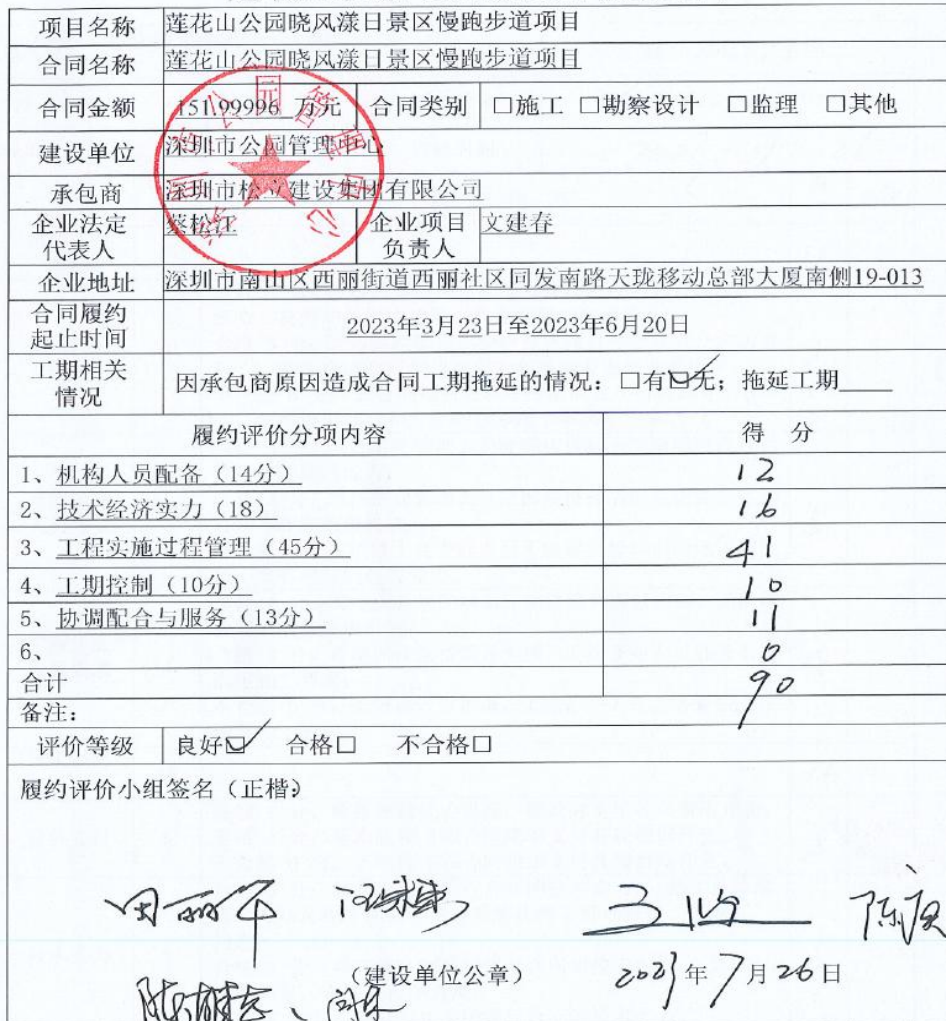 项目名称 莲花山公园晓风漾日景区慢跑步道项目
合同名称 莲花山公园晓风漾日景区慢跑步道项目
合同金额 151.99996 万元 合同类别 □施工 □勘察设计 □监理 □其他
建设单位 深圳市公园管理中心
承包商 深圳市松立建设集团有限公司
企业法定代表人 蔡松江 企业项目负责人 文建春
企业地址 深圳市南山区西丽街道西丽社区同发南路天珑移动总部大厦南侧19-013
合同履约起止时间 2023年3月23日至2023年6月20日
工期相关情况 因承包商原因造成合同工期拖延的情况：□有☑无；拖延工期____
履约评价分项内容 得 分
1、机构人员配备（14分） 12
2、技术经济实力（18） 16
3、工程实施过程管理（45分） 41
4、工期控制（10分） 10
5、协调配合与服务（13分） 11
6、 0
合计 90
备注：
评价等级 良好☑ 合格□ 不合格□
履约评价小组签名（正楷）
田丽华
（建设单位公章） 2023年7月26日